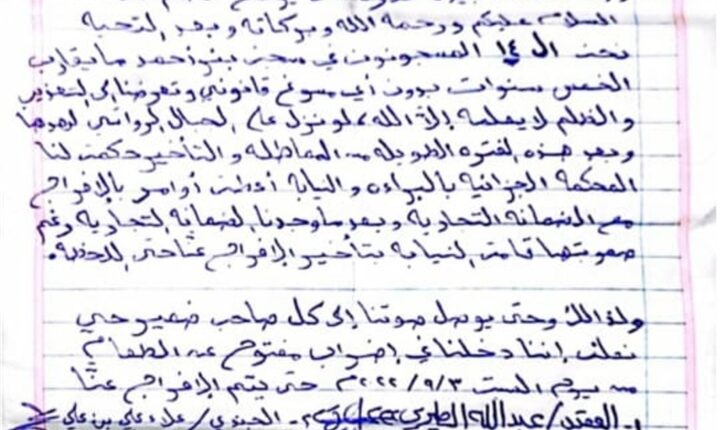 السلام عليكم ورحمة الله وبركاته وبعد التحية
نحن ال ١٤ المسجونون في سجن بئر أحمد ما يقارب
الخمس سنوات بدون أي مسوغ قانوني وتعرضنا إلى التعذيب
والظلم لا يعلمه إلا الله، لو نزل على الجبال الرواسي لهدها
وبعد هذه الفتره الطويله من المماطله والتأخير حكمت لنا
المحكمة الجزائية بالبراءه والنيابة أعطت أوامر بالإفراج
مع الضمانه التجارية وبعد ما وجدنا الضمانه التجاريه رغم
صعوبتها قامت النيابه بتأخير الإفراج عنّا حتى اللحظه.
ولذالك وحتى يوصل صوتنا إلى كل صاحب ضمير حي
نعلن إننا دخلنا في إضراب مفتوح عن الطعام
من يوم السبت ٢٠٢٢/٩/٣م حتى يتم الإفراج عنّا
١- العقيد/ عبدالله الطيري ٢- الجندي/ علاء علي بن علي